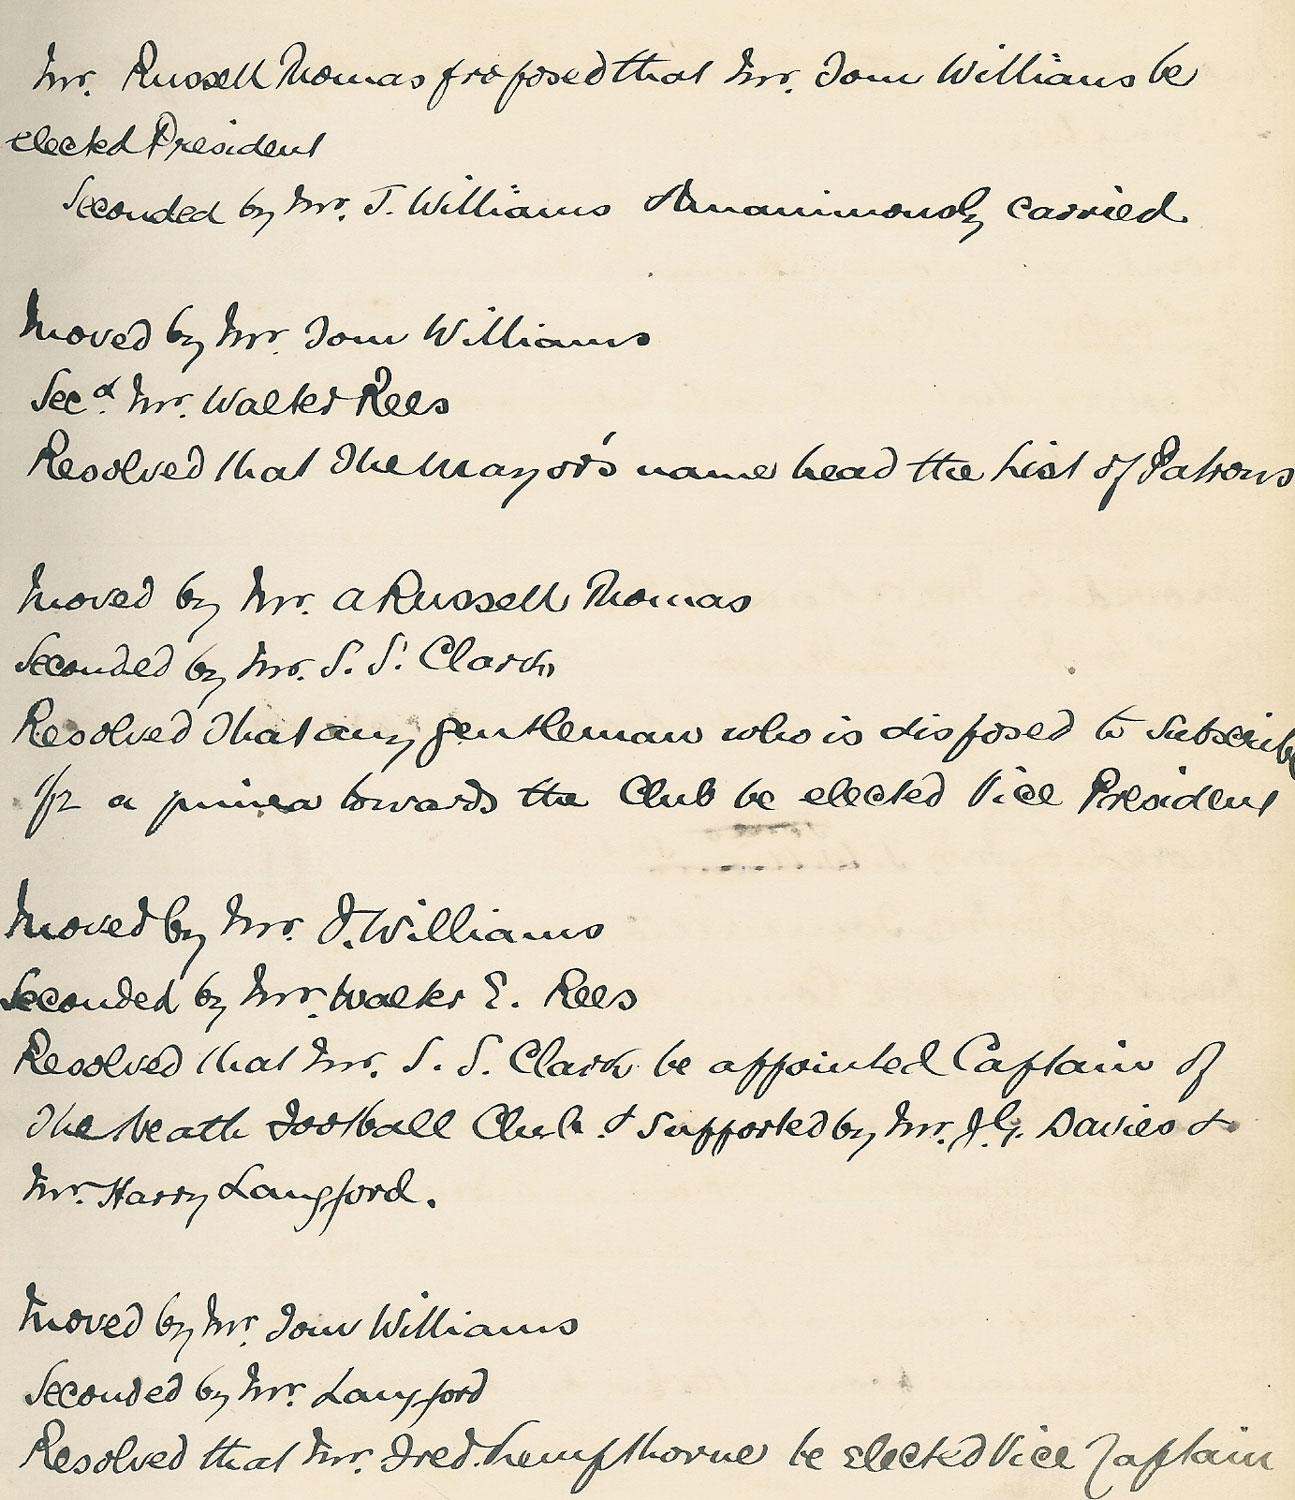 Mr. Russell Thomas proposed that Mr. Tom Williams be
elected President
Seconded by Mr. T. Williams & unanimously carried
Moved by Mr. Tom Williams
Secd. Mr. Walter Rees
Resolved that the Mayor's name head the list of Patrons
Moved by Mr. A Russell Thomas
Seconded by Mr. S. S. Clark
Resolved that any gentleman who is disposed to subscribe
1/2 a guinea towards the Club be elected Vice President
Moved by Mr. J. Williams
Seconded by Mr. Walter E. Rees
Resolved that Mr. S. S. Clark be appointed Captain of
the Neath Football Club & supported by Mr. J. G. Davies &
Mr. Harry Langford.
Moved by Mr. Tom Williams
Seconded by Mr. Langford
Resolved that Mr. Fred. Kempthorne be elected Vice Captain